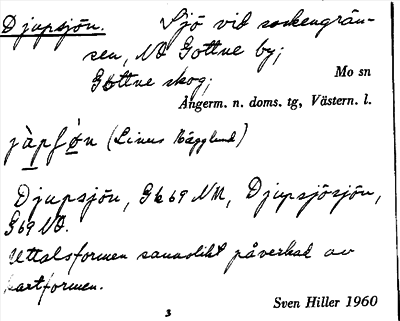 Djupsjön. Sjö vid sockengrän-
sen, NO Gottne by;
Gottne skog;
Mo sn
Ångerm. n. doms. tg, Västern. l.
jàpſøn (Linus Hägglund)
Djupsjön, Gk 69 NM, Djupsjösjön,
G 69 NO.
Uttalsformen sannolikt påverkad av
kartformen.
3
Sven Hiller 1960